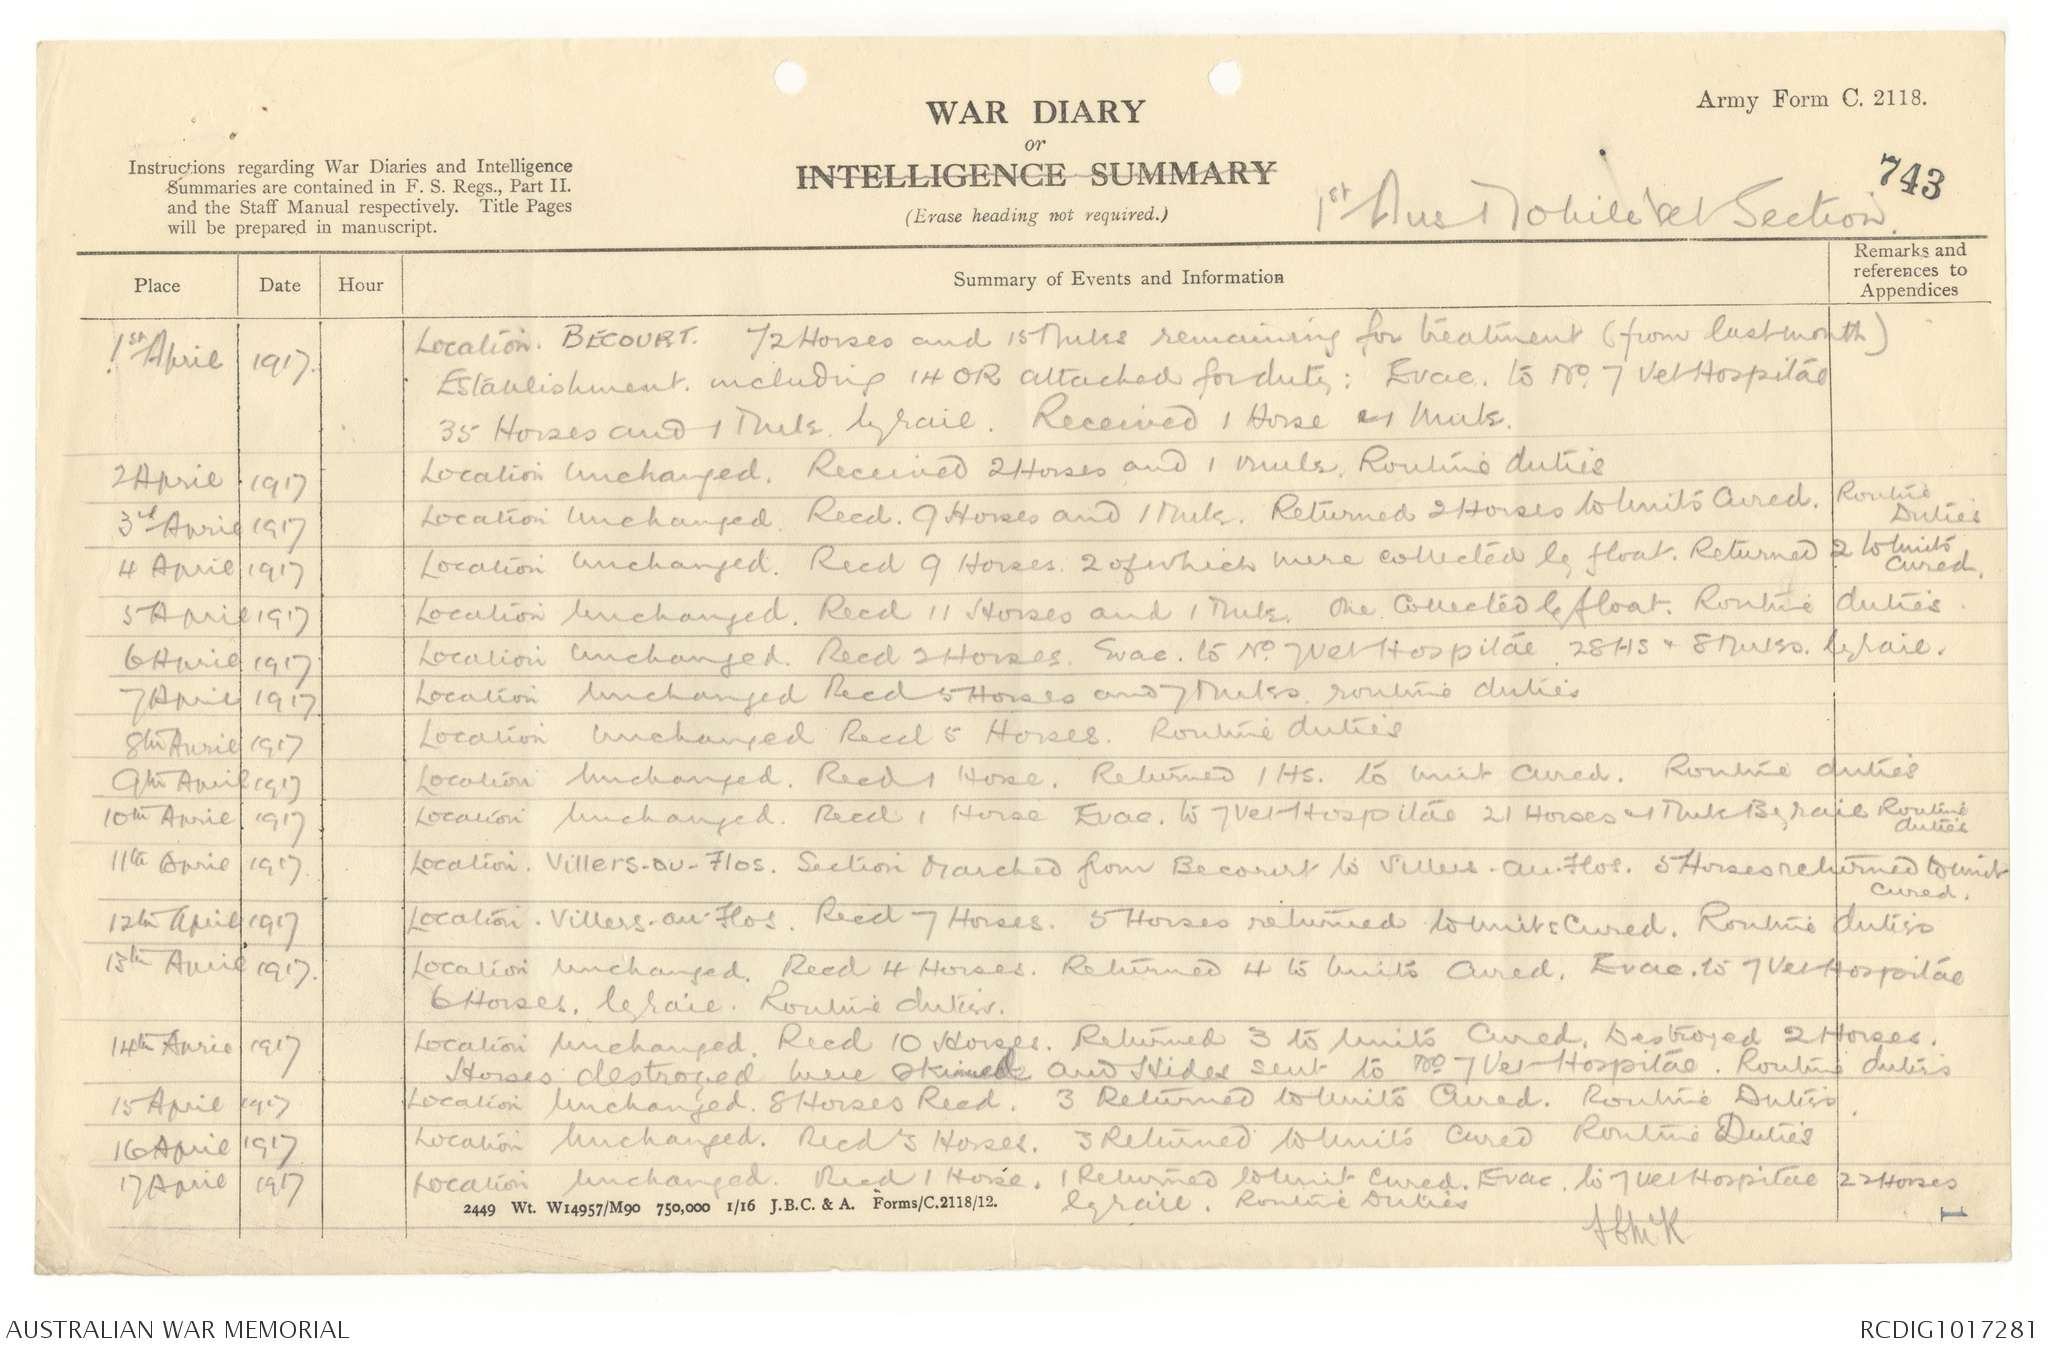 Army Form C. 2118.
WAR DIARY
or
INTELLIGENCE SUMMARY
(Erase heading not required.)
Instructions regarding War Diaries and Intelligence
Summaries are contained in F. S. Regs., Part II.
and the Staff Manual respectively. Title Pages
will be prepared in manuscript.
743
1st Aus Mobile Vet Section.
Place Date Hour Summary of Events and Information Remarks and
references to
Appendices
1st April 1917. Location. BECOURT. 72 Horses and 15 Mules remaining for treatment (from last month)
Establishment. including 14 OR attached for duty; Evac. to No. 7 Vet Hospital
35 Horses and 1 Mule. by rail. Received 1 Horse & 1 Mule.
2 April 1917 Location Unchanged. Received 2 Horses and 1 Mule. Routine duties
3rd April 1917 Location Unchanged. Recd. 9 Horses and 1 Mule. Returned 2 Horses to Units Cured. Routine
Duties
4 April 1917 Location Unchanged. Recd 9 Horses. 2 of which were collected by float. Returned 2 to Units
Cured.
5 April 1917 Location Unchanged. Recd 11 Horses and 1 Mule. One Collected by float. Routine duties.
6 April 1917 Location Unchanged. Recd 2 Horses. Evac. to No. 7 Vet Hospital. 28 HS & 8 Mules. by rail.
7 April 1917 Location Unchanged Recd 5 Horses and 7 Mules. routine duties
8th April 1917 Location Unchanged Recd 5 Horses. Routine duties
9th April 1917 Location Unchanged. Recd 1 Horse. Returned 1 HS. to Unit cured. Routine duties
10th April 1917 Location Unchanged. Recd 1 Horse Evac. to 7 Vet Hospital 21 Horses & 1 Mule By rail Routine
duties
11th April 1917. Location. Villers-au-Flos. Section Marched from Becourt to Villers-au-Flos. 5 Horses returned to Unit
cured.
12th April 1917 Location. Villers-au-Flos. Recd 7 Horses. 5 Horses returned to Units Cured. Routine duties
13th April 1917. Location Unchanged. Recd 4 Horses. Returned 4 to Units Cured. Evac. to 7 Vet Hospital
6 Horses. by rail. Routine duties.
14th April 1917 Location Unchanged. Recd 10 Horses. Returned 3 to Units Cured. Destroyed 2 Horses.
Horses destroyed were skinned and Hides sent to No. 7 Vet Hospital. Routine duties
15 April 1917 Location Unchanged. 8 Horses Recd. 3 Returned to Units Cured. Routine Duties.
16 April 1917 Location Unchanged. Recd 3 Horses. 3 Returned to Units cured Routine Duties
17 April 1917 Location Unchanged. Recd 1 Horse. 1 Returned to Unit cured. Evac. to 7 Vet Hospital 22 Horses
by rail. Routine Duties
2449 Wt. W14957/M90 750,000 1/16 J.B.C. & A. Forms/C.2118/12.
1
AUSTRALIAN WAR MEMORIAL
RCDIG1017281